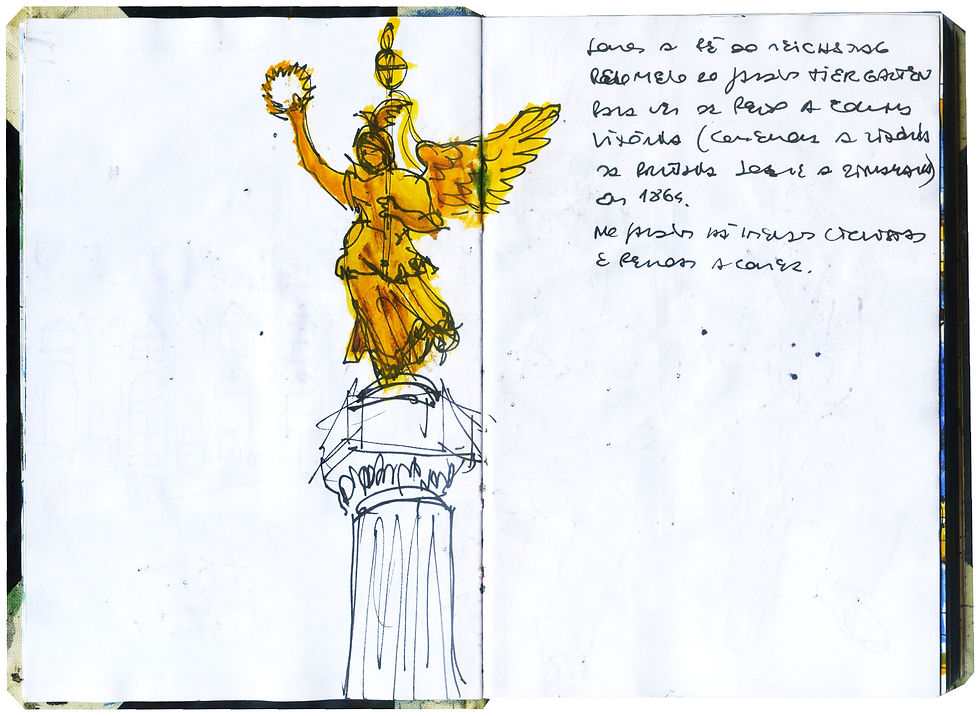 Fomos a pé do Reichstag
pelo meio do jardim Tiergarten
para ver de perto a Coluna
Vitória (comemora a vitória
da Prússia sobre a Dinamarca)
em 1864.
No jardim há imensos ciclistas
e pessoas a correr.